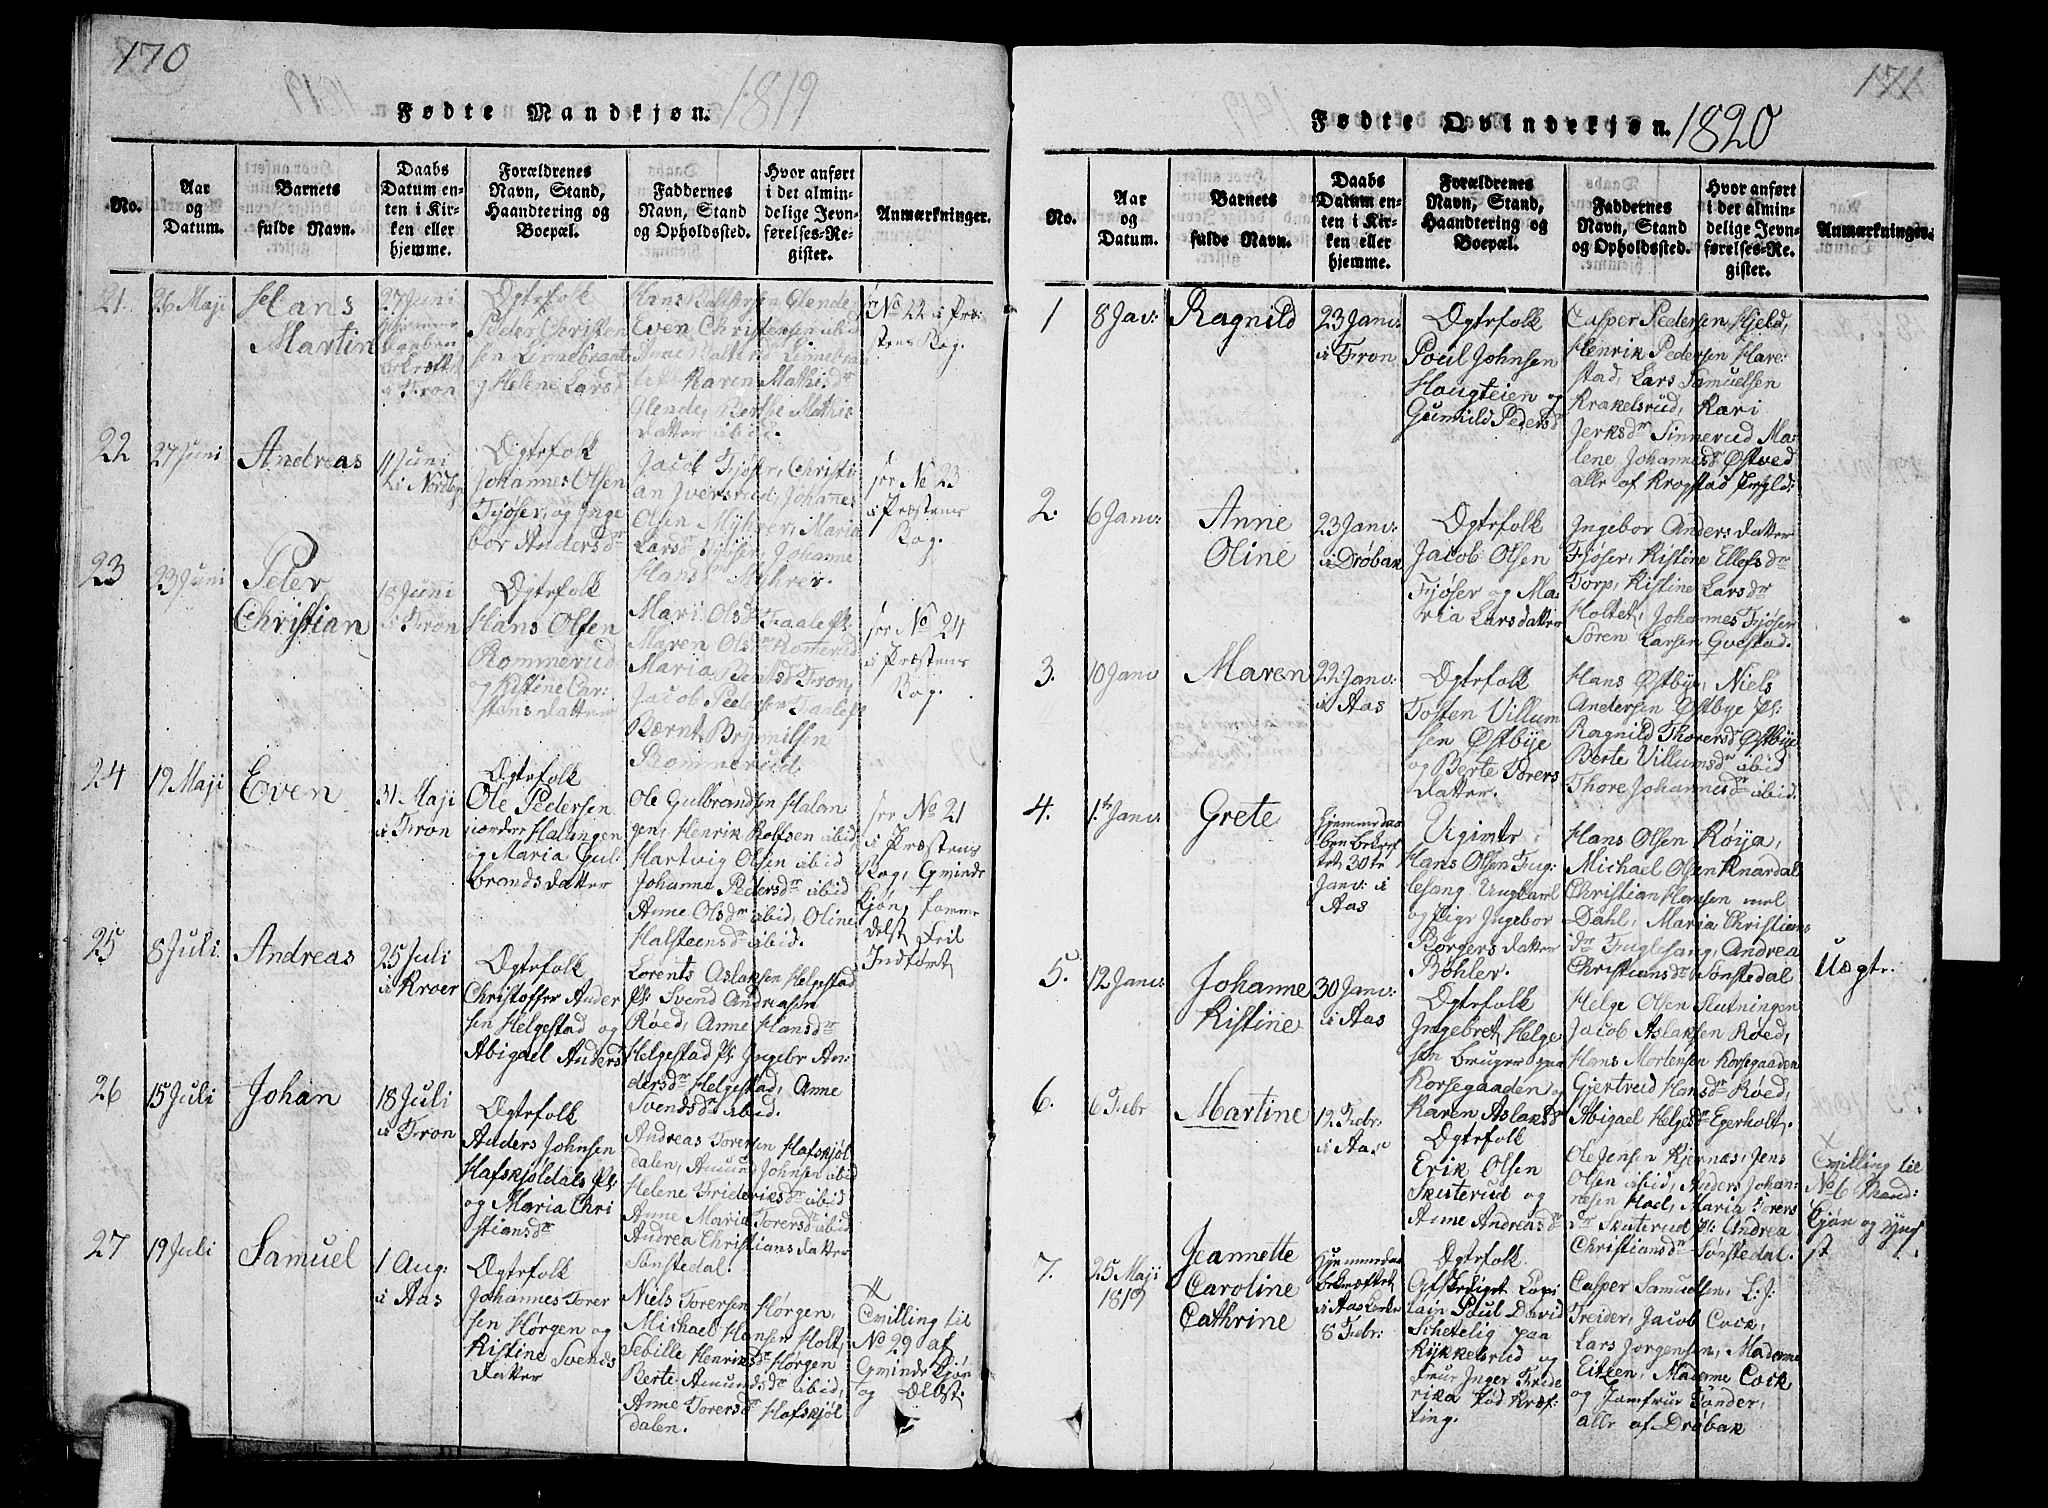 170
1819
Fødte Mandkjøn.
No.
Aar
og
Datum.
Barnets
fulde Navn.
Daabs
Datum en-
ten i Kir-
ken eller
hjemme.
Forældrenes
Navn, Stand,
Haandtering og
Boepæl.
Faddernes
Navn, Stand
og Opholdssted.
Hvor anført
i det almin-
delige Jevn-
førelses-Re-
gister.
Anmærkninger.
21.
26 Maji
Hans
Martin
27 Juni
i Fron
Ægtefolk
Peder Christen
sen Linnebrant
og Helene Larsdr
Even Christensen ibid
Karen Mathisdr
Glende, Berthe Mathis
datter ibid.
see No 22 i Præ:
stens Bog.
22
27 Juni
Andreas
11 Juni
i Nordby
Ægtefolk
Johannes Olsen
Fjøser, og Inge
bor Andersdr
Jacob Fjøser, Christi-
an Iversrud, Johanes
Olsen Myhrer, Maria
Larsdr Fjøser, Johanne
Hansdr Myhrer.
see No 23
i Præstens
Bog.
23
23 Juni
Peter
Christian
18 Juni
i Fron
Ægtefolk
Hans Olsen
Rommerud
og Kistine Car:
stens datter
Mari Olsdr Taale Pl:
Maren Olsdr Romerud
Maria Bentsdr Fron,
Jacob Pedersen
Bærnt Brynnilsen
Rommerud
see No 24
i Præstens
Bog.
24
19 Maji
Even
31 Maji
i Fron
Ægtefolk
Ole Pedersen
Halangen
og Maria Gul:
brandsdatter
Ole Gulbrandsen Halan
gen, Henrik Rolfsen ibid
Hartvig Olsen ibid
Johanne Pedersdr ibid
Anne Olsdr ibid, Oline
Halsteensdr ibid.
see No 21
i Præstens
Bog, Qvinde
Kjøn, samme
deest Feil
Indført
25
8 Juli.
Andreas
25 Juli
i Kroer
Ægtefolk
Christoffer Ander
sen Helgestad og
Abigael Anders
Lorents Aslaksen Helgestad
Pl: Svend Andreasen
Røed, Anne Hansdr
Helgestad Pl: Ingebr An:
dersdr Helgestad, Anne
Svendsdr ibid.
26
15 Juli
Johan
18 Juli
i Fron
Ægtefolk
Anders Johnsen
Hafskjoldals Pl:
og Maria Chri
stiansdr
Andreas Torersen Hafskjøl
dalen, Amund Johnsen ibid
Helene Frideriksdr ibid
Anne Maria Torersdr ibid
Andrea Christians datter
Sønstedal.
27
19 Juli
Samuel
1 Aug:
i Aas
Ægtefolk
Johannes Torer
sen Hørgen og
Kistine Svends
datter
Niels Torersen Hørgen,
Michael Hansen Holt,
Sebille Henriksdr Hørgen
Berte Amundsdr ibid,
Anne Torersdr Hafskjøl
dalen.
Tvilling til
No 29 af
Qvinde Kjøn
og Ældst.
171
Fødte Qvindekjøn.
1820
No.
Aar
og
Datum.
Barnets
fulde Navn.
Daabs
Datum en-
ten i Kir-
ken eller
hjemme.
Forældrenes
Navn, Stand,
Haandtering og
Boepæl.
Faddernes
Navn, Stand
og Opholdssted.
Hvor anført
i det almin-
delige Jevn-
førelses-Re-
gister.
Anmærkninger.
1
8 Jav:
Ragnild
23 Janv:
i Fron
Ægtefolk
Poul Johnsen
Haugteien og
Gunhild Pedersdr
Casper Pedersen Hjeld,
Henrik Pedersen Hare:
stad, Lars Samuelsen
Krakelsrud, Kari
Jerksdr Sinnerud Ma:
lene Johannesdr Østved
alle af Krogstad
2.
6 Janv:
Anne
Oline
23 Janv:
i Drøbak
Ægtefolk
Jacob Olsen
Fjøser og Ma:
ria Lars datter
Ingebor Anders datter
Fjøser, Kistine Ellefsdr
Torp, Kistine Larsdr
Holtet, Johannes Fjøser
Søren Larsen Qvestad.
3.
10 Janv
Maren
22 Janv:
i Aas
Ægtefolk
Tosten Villum
sen Østbye
og Berte Torers
datter.
Hans Østbye, Niels
Andersen Østbye Pl:
Ragnild Thorersdr Østbye
Berte Villumsdr ibid
Thore Johannesdr ibid.
4.
1te Janv:
Grete
Hjemmedaa
ben bekref
tet 30te
Janv: i
Aas
Ugivte
Hans Olsen Fug:
lesang Ungkarl
og Pige Ingebor
Borgers datter
Bøhler.
Hans Olsen Røija,
Michael Olsen Knardal
Christian Hansen mel
Dahl, Maria Christians
dr Fuglesang, Andrea
Christiansdr Sønstedal
Uægte.
5.
12 Janv:
Johanne
Kistine
30 Janv:
i Aas
Ægtefolk
Ingebret Helge
sen bruger paa
Korsegaaden og
Karen Aslaksdr
Helge Olsen Slutningen
Jacob Aslaksen Røed,
Hans Mortensen Korsegaaden
Gjertrud Hansdr Røed,
Abigael Helgesdr Egerholt.
6.
6 Febr
Martine
12 Febr:
i Aas
Ægtefolk
Erik Olsen
Skuterud og
Anne Andreasdr
Ole Jensen Kjernæs, Jens
Olsen ibid, Anders Johan-
nesen Hoel, Maria Torers
dr Skuterud Pl: Andrea
Christiansdr Sønstedal.
Tvilling til
No 6 Mand:
Kjøn og Yng
st
7.
25 Maji
1819
Jeannette
Caroline
Cathrine
Hjemmedaab
bekræftet
i Aas Kirke
8 Febr:
Ægtefolk.
Afskediget Capi
tain Poul David
Schetelig paa
Rykkelsrud og
Frue Inger Fride
rika fød Kræf-
ting.
Casper Samuelsen, L. J:
Treider, Jacob Cock,
Lars Jorgensen, Madame
Eitzen, Madame Cock
og Jomfrue Sønder,
alle af Drøbak